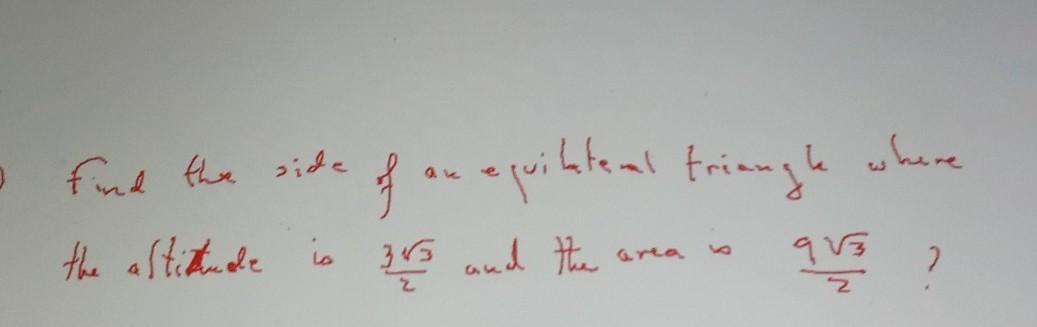 Find the side of an equilateral triangle where
the altitude is 3√3/2 and the area is 9√3/2 ?